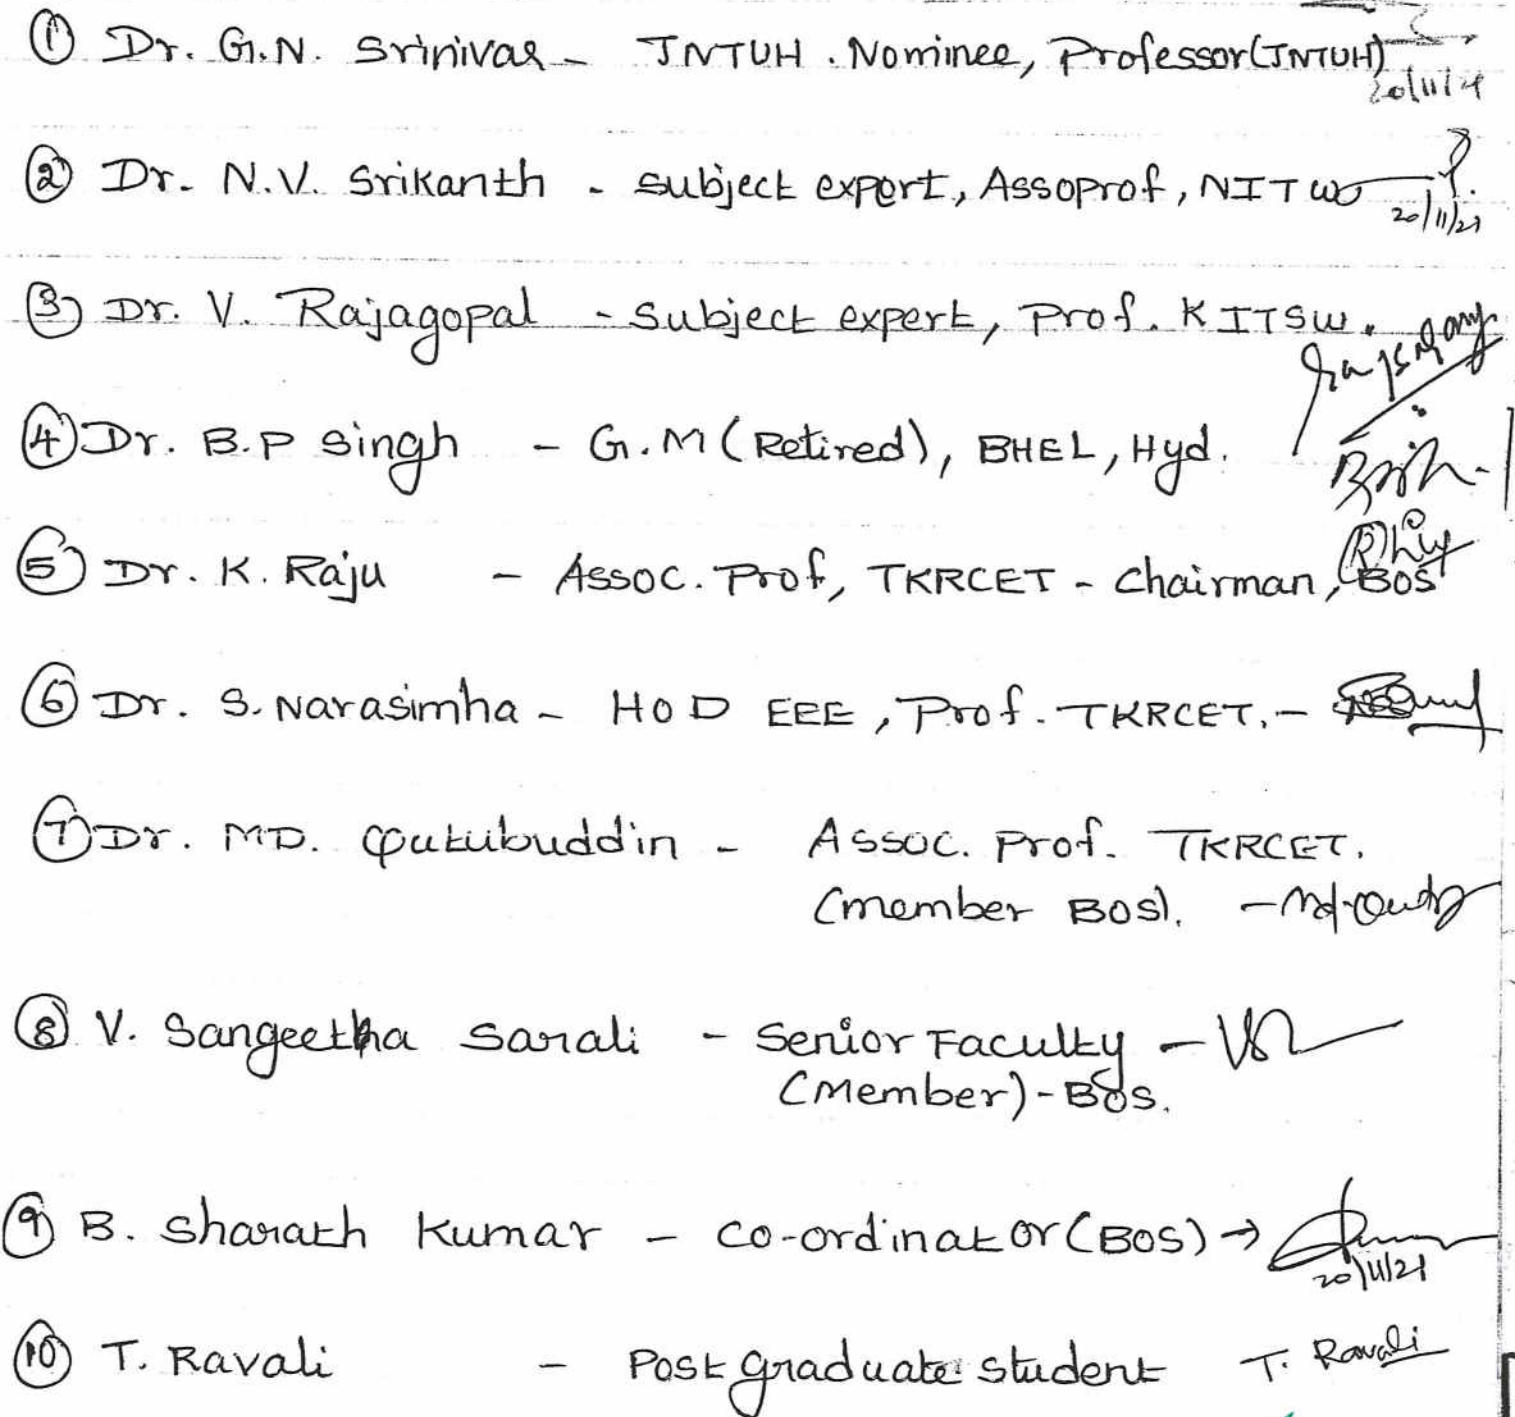 ① Dr. G.N. Srinivas - JNTUH. Nominee, Professor(JNTUH)
20/11/21
② Dr. N.V. Srikanth - subject expert, Assoprof, NITW
20/11/21
③ Dr. V. Rajagopal - subject expert, Prof. KITSW.
④ Dr. B.P Singh - G.M (Retired), BHEL, Hyd.
⑤ Dr. K. Raju - Assoc. Prof, TKRCET - Chairman, BOS
⑥ Dr. S. Narasimha - HOD EEE, Prof. TKRCET. -
⑦ Dr. MD. Qutubuddin - Assoc. Prof. TKRCET.
(member BOS). -
⑧ V. Sangeetha Sarali - Senior Faculty -
(Member) - BOS.
⑨ B. Sharath Kumar - co-ordinator (BOS) →
20/11/21
⑩ T. Ravali - Post graduate student T. Ravali